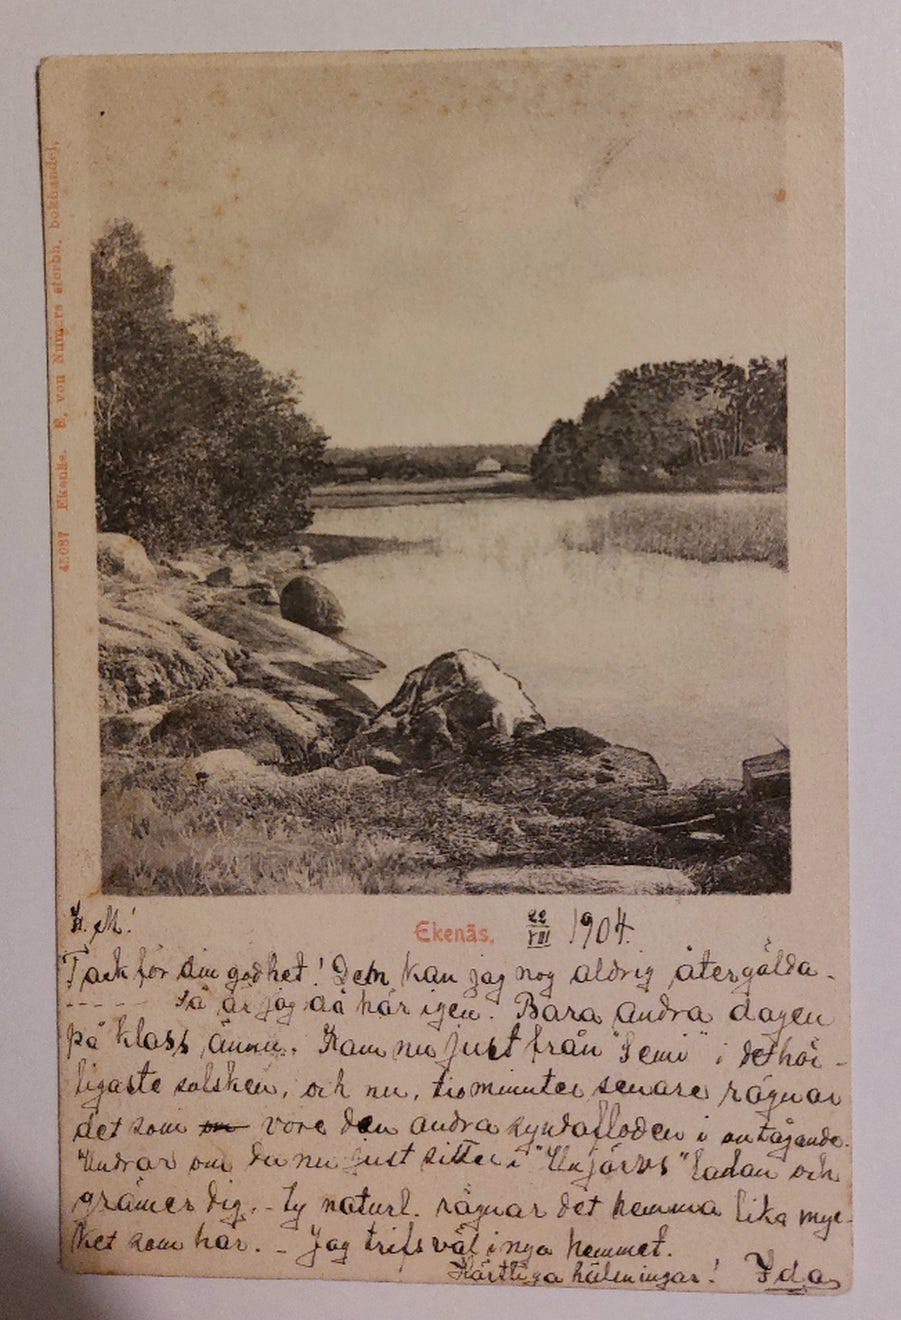 43087 Ekenäs. E. von Numers sterbh. bokhandel.
K. M!
Ekenäs. 22/VIII 1904.
Tack för din godhet! Den kan jag nog aldrig återgälda.
----- Så är jag då här igen. Bara andra dagen
på klass ännu. Kom nu just från "Semi" i det här-
ligaste solsken, och nu, tio minuter senare rägnar
det som vore den andra syndafloden i antågande.
Undrar om du nu just sitter i "Unjärvs" ladan och
grämer dig. - Ty naturl. rägnar det hemma lika myc-
ket som här. - Jag trifs väl i nya hemmet.
Härtliga hälsningar! Ida